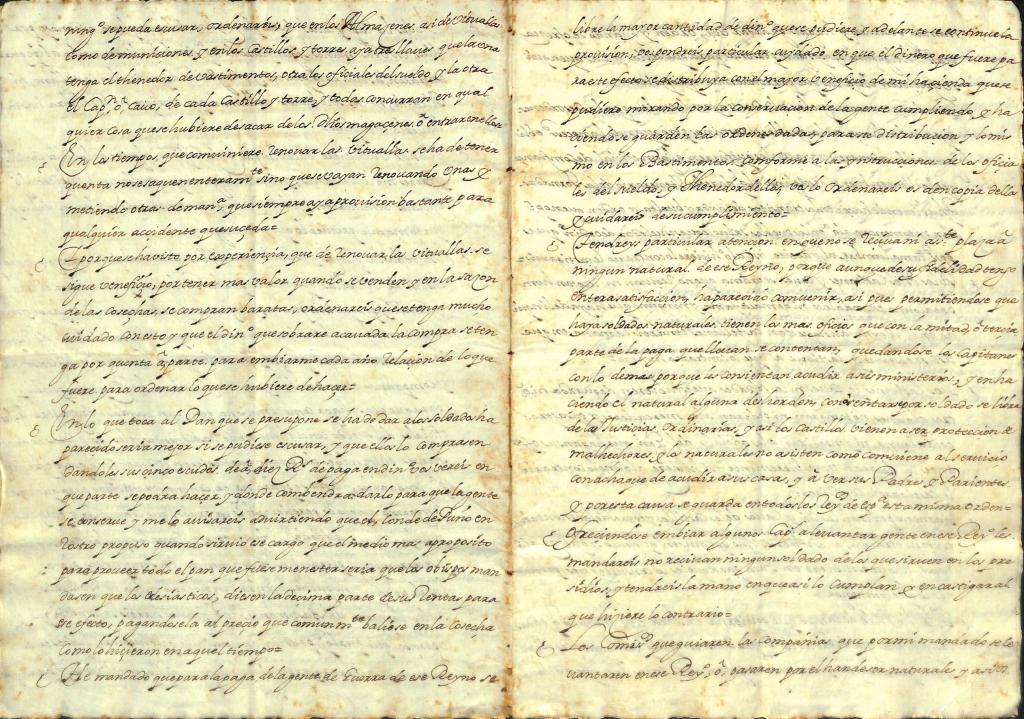 ning.º se pueda escusar, ordenareis, que en los Almagenes asi de vitualla
como de municiones, y en los Castillos y torres aya tres llaves que la una
tenga el thenedor de vastimentos, otra los oficiales del sueldo, y la otra
el Cap.ⁿ ò Cavo, de cada Castillo y torre, y todos concurran en qual
quier cosa que se hubiere de sacar de los Dhos magaçenes, ò entrar en ellos
En los tiempos, que comviniere Renovar las Vituallas se ha de tener
quenta no se saquen enteram.te sino que se vayan Renovando Unas y
metiendo otras de man.ª que siempre aya provision bastante para
qualquier accidente que suçeda=
Y porque se ha visto por Experiençia, que de Renovar las vituallas se
sigue veneficio, por tener mas valor quando se venden, y en la sazon
de las cosechas, se compran baratas, ordenareis que se tenga mucho
cuidado con esto y que el din.º que sobrare acavada la compra se ten
ga por quenta à parte, para embiarme cada año Relaçion de lo que
fuere, para ordenar lo que se hubiere de haçer=
En lo que toca al Pan que se presupone se ha de dar a los soldados ha
parecido seria mejor si se pudiese escusar, y que ellos lo comprasen
dandoles sus cinco escudos de à diez R.s de paga en din.º vos vereis en
que parte se podra haçer, y donde combendra darlo para que la gente
se conserve y me lo avisareis advirtiendo que el Conde de Puño en
Rostro propuso quando sirvio ese cargo que el medio mas aproposito
para proveer todo el pan que fuese menester seria que los obispos man
dasen que los eclesiasticos, diesen la decima parte de sus Rentas para
ese efecto, pagandosela al precio que comunm.te baliese en la Cosecha
como lo hiçieron en aquel tiempo=
He mandado que para la paga de la gente de Guerra de ese Reyno se
libre la mayor cantidad de din.º que se pudiere y adelante se continue la
provision, vos pondreis particular cuydado en que el dinero que fuere pa
ra este efecto se distribuya con el mayor veneficio de mi hacienda que se
pudiere mirando por la conservacion de la gente cumpliendo, y ha
ciendo se guarden las ordenes dadas, para su distribucion, y lo mis
mo en los Bastimentos conforme a las ynstrucciones de los oficia
les del sueldo, y Thenedor dellos, vos lo ordenareis os den copia dellas
y cuidareis de su cumplimiento=
Tendreys particular atencion en que no se Reçivan asi.te plaza à
ningun natural de ese Reyno, porque aunque de su fidelidad tengo
entera satisfacion, ha parecido comvenir, asi pues permitiendose que
haya soldados naturales, tienen los mas oficios que con la mitad, ò tercia
parte de la paga que llevan se contentan, quedandose los Capitanes
con lo demas porque les consientan acudir a sus ministerios, y en ha
ciendo el natural alguna deshorden, con sentar por soldado se libra
de las Justicias Ordinarias, y asi los Castillos vienen a ser proteccion de
malhechores, y los naturales no asisten como comviene al servicio
con achaque de acudir a sus casas, y à ver sus Padres y Parientes
y por esta causa se guarda en todos los Rey.os de Esp.ª esta misma orden=
Ofreciendose embiar algunos Cap.s a levantar gente en ese Rey.º les
mandareis no recivan ningun soldado de los que sirven en los pre
sidios, y tendreis la mano en que asi lo cumplan, y en castigar al
que hiziere lo contrario=
Los Comis.os que guiaren las compañias que por mi mandado se le
vantaren en ese Rey.º, ò pasaren por el han de ser naturales y asi